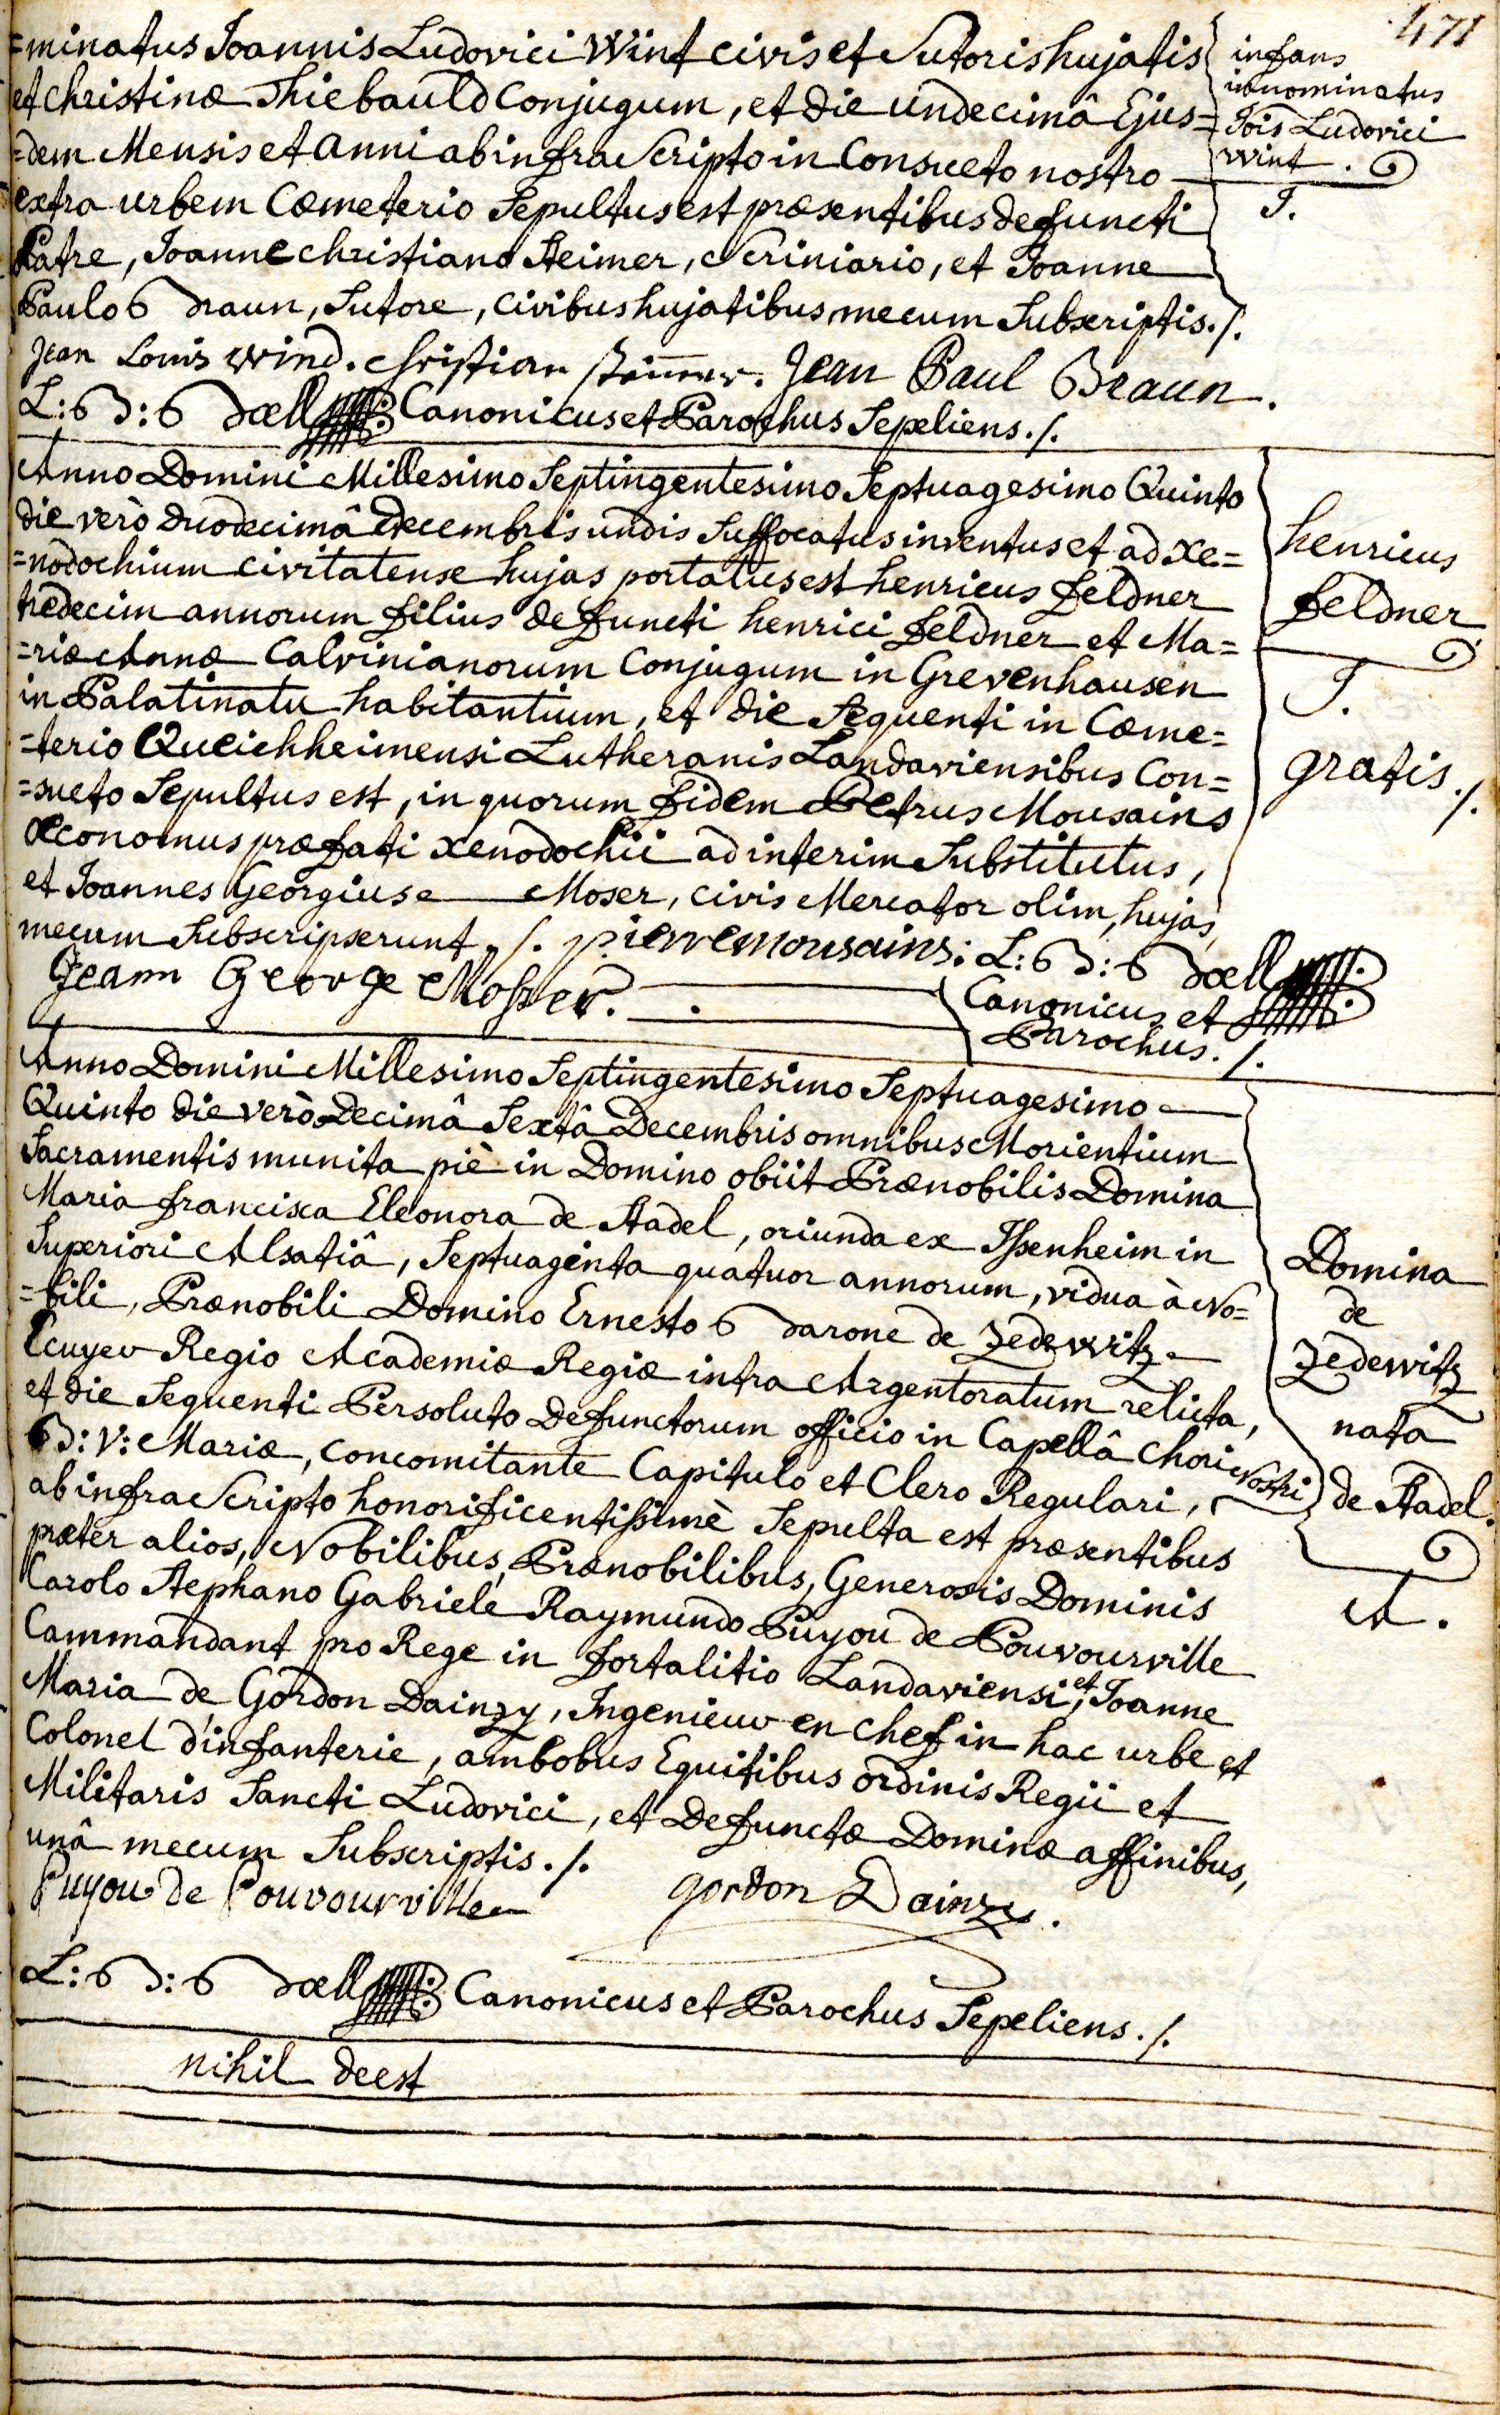 471
=minatus Joannis Ludovici Wint civis et Sutoris hujatis
et Christinæ Thiebauld Conjugum, et die undecimâ Ejus=
=dem Mensis et anni ab infra Scripto in Consueto nostro
extra urbem Cœmeterio Sepultus est præsentibus defuncti
Patre, Joanne Christiano Steimer, Scriniario, et Joanne
Paulo Braun, Sutore, Civibus hujatibus mecum Subscriptis./.
Jean Louis Wind. Christian Jean Paul Braun.
L: B: Bœll Canonicus et Parochus Sepeliens./.
infans
innominatus
Jois Ludovici
Wint.
J.
Anno Domini Millesimo Septingentesimo Septuagesimo Quinto
die verò duodecimâ Decembris undis Suffocatus inventus et ad Xe=
=nodochium Civitatense hujas portatus est henricus feldner
tredecim annorum filius defuncti henrici feldner et Ma=
=riæ Annæ Calvinianorum Conjugum in Grevenhausen
in Palatinatu habitantium, et die Sequenti in Cœme=
=terio Queichheimensi Lutheranis Landaviensibus Con=
=sueto Sepultus est, in quorum fidem Petrus Mousains
Œconomus præfati Xenodochii ad interim Substitutus,
et Joannes Georgius Moser, Civis Mercator olim, hujas,
mecum Subscripserunt ./. pierre mousains: L: B: Bœll
Jeann George Mosser. Canonicus et
Parochus./.
henricus
feldner
J.
gratis./.
Anno Domini Millesimo Septingentesimo Septuagesimo
Quinto die verò Decimâ Sextâ Decembris omnibus Morientium
Sacramentis munita piè in Domino obiit Prænobilis Domina
Maria francisca Eleonora de Stadel, oriunda ex Issenheim in
Superiori Alsatiâ, Septuaginta quatuor annorum, vidua à No=
=bili, Prænobili Domino Ernesto Barone de Zedewitz
Ecuyer Regio Academiæ Regiæ intra Argentoratum relicta,
et die Sequenti Persoluto Defunctorum officio in Capellâ Chori nostri
B: V: Mariæ, Concomitante Capitulo et Clero Regulari,
ab infra Scripto honorificentissimè Sepulta est præsentibus
præter alios, Nobilibus, Prænobilibus, Generosis Dominis
Carolo Stephano Gabriele Raymundo Puyou de Pouvourville
Cammandant pro Rege in fortalitio Landaviensi, et Joanne
Maria de Gordon Dainzy, Ingenieur en Chef in hac urbe et
Colonel d'infanterie, ambobus Equitibus ordinis Regii et
Militaris Sancti Ludovici, et Defunctæ Dominæ affinibus,
unâ mecum Subscriptis./.
Puyou de Pouvourville gordon Dainzy.
L: B: Bœll Canonicus et Parochus Sepeliens./.
Domina
de
Zedewitz
nata
de Stadel.
A.
nihil deest